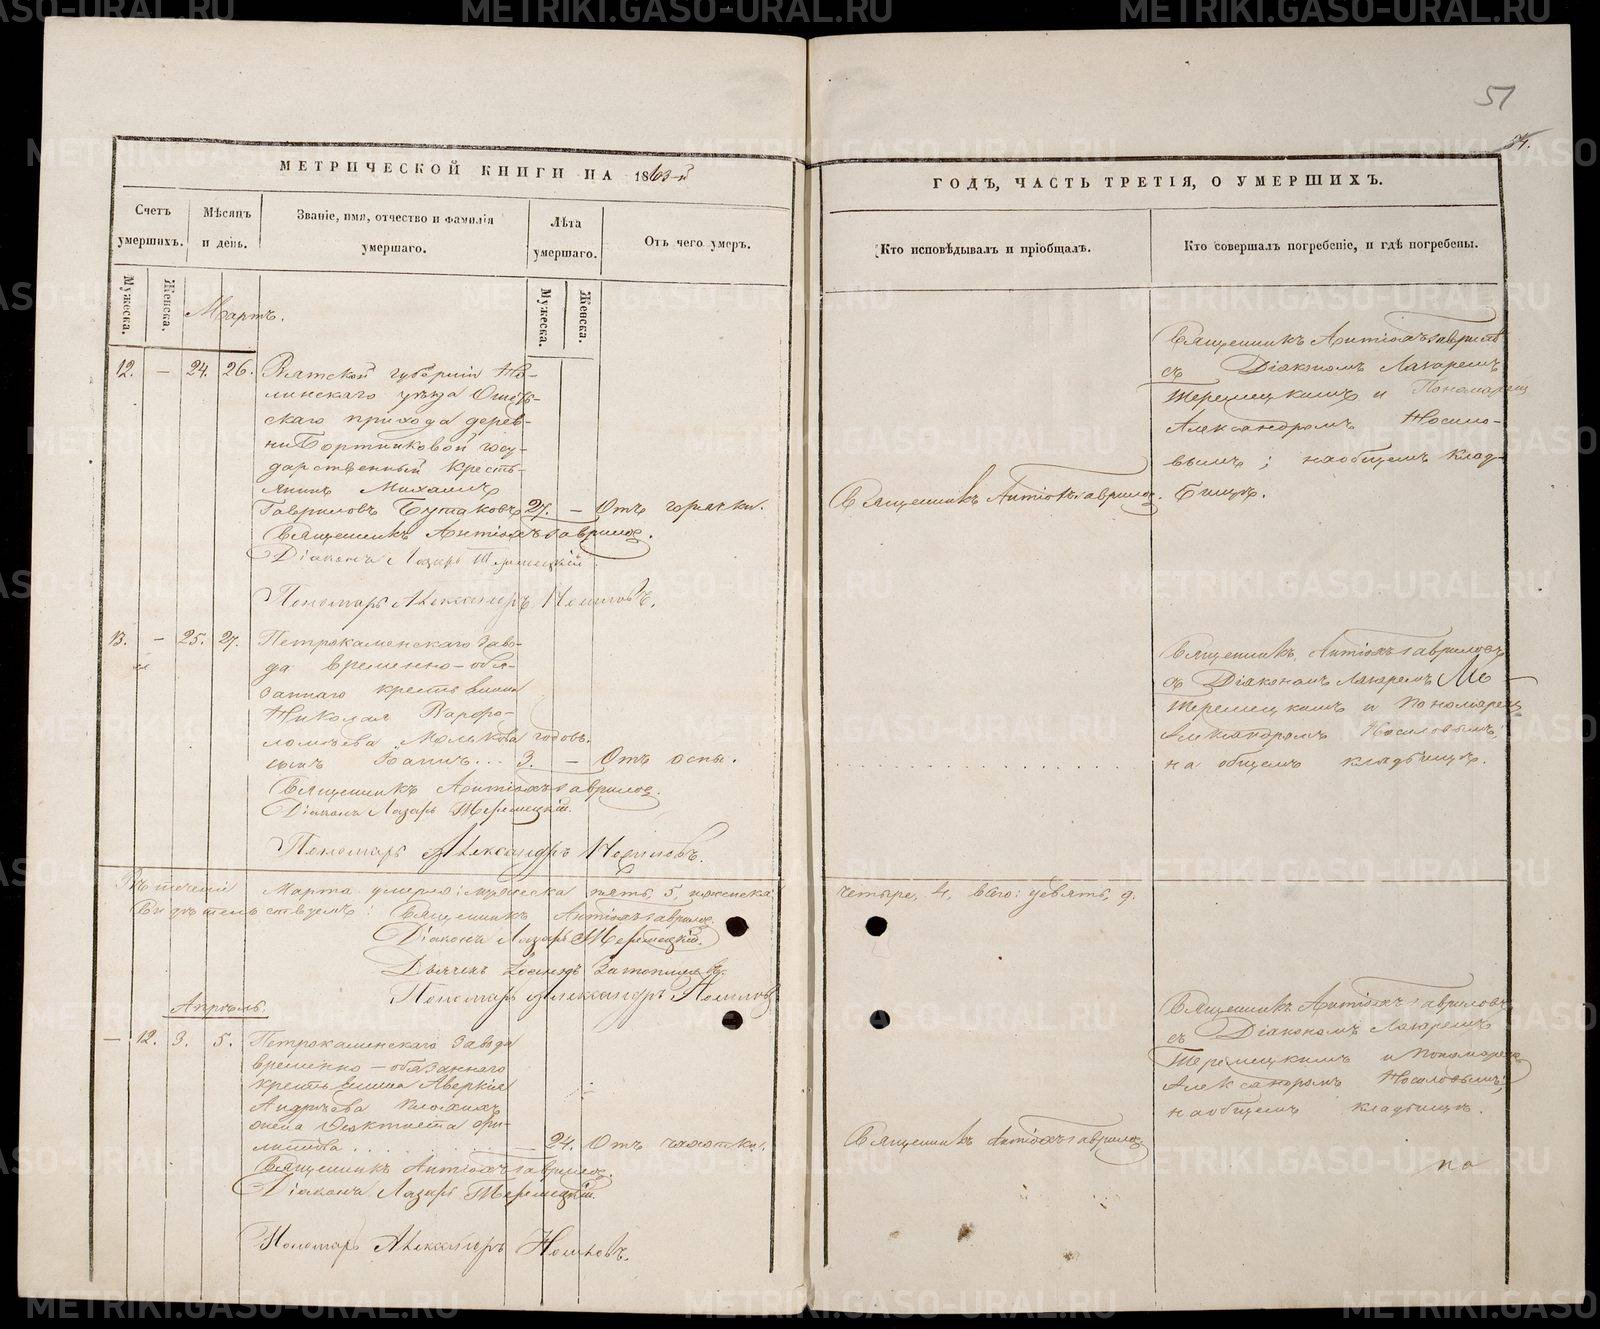 51
МЕТРИЧЕСКОЙ КНИГИ НА 1863-й
ГОДЪ, ЧАСТЬ ТРЕТІЯ, О УМЕРШИХЪ.
Счетъ умершихъ.
Мѣсяцъ и день.
Званіе, имя, отчество и фамилія умершаго.
Лѣта умершаго.
Отъ чего умеръ.
Кто исповѣдывалъ и пріобщалъ.
Кто совершалъ погребеніе, и гдѣ погребены.
Мужеска.
Женска.
Мужеска.
Женска.
Мартъ.
12. — 24. 26.
Вятской губерніи Но-
линскаго уѣзда
скаго прихода дерев-
ни Бортниковой госу-
дарственный кресть-
янинъ Михаилъ
Гавриловъ Бутаковъ 27. — Отъ горячки.
Священникъ Антіохъ Гавриловъ.
Діаконъ Лазарь Теремецкій
Пономарь Александръ Носиловъ.
Священникъ Антіохъ Гавриловъ.
Священникъ Антіохъ Гавриловъ
съ Діакономъ Лазаремъ
Теремецкимъ и Пономаремъ
Александромъ Носило-
вымъ; на общемъ клад-
бищѣ.
13. — 25. 27.
Петрокаменскаго Заво-
да временно-обя-
заннаго крестьянина
Николая Варфо-
ломѣева годовъ.
сынъ 3. — Отъ оспы.
Священникъ Антіохъ Гавриловъ.
Діаконъ Лазарь Теремецкій.
Пономарь Александръ Носиловъ.
Священникъ Антіохъ Гавриловъ
съ Діакономъ Лазаремъ
Теремецкимъ и Пономаремъ
Александромъ Носиловымъ;
на общемъ кладбищѣ.
Въ теченіи Марта умерло: мужеска пять, 5, и женска
четыре, 4, всего: девять, 9.
Свидѣтельствуемъ: Священникъ Антіохъ Гавриловъ
Діаконъ Лазарь Теремецкій.
Дьячекъ
Пономарь Александръ Носиловъ
Апрѣль.
— 12. 3. 5.
Петрокаменскаго Завода
временно-обязаннаго
крестьянина Аверкія
Андрѣева Плохихъ
жена Феоктиста Фи-
липпова 24. Отъ чахотки.
Священникъ Антіохъ Гавриловъ.
Діаконъ Лазарь Теремецкій.
Пономарь Александръ Носиловъ.
Священникъ Антіохъ Гавриловъ
Священникъ Антіохъ Гавриловъ
съ Діакономъ Лазаремъ
Теремецкимъ и Пономаремъ
Александромъ Носиловымъ;
на общемъ кладбищѣ.
по
METRIKI.GASO-URAL.RU